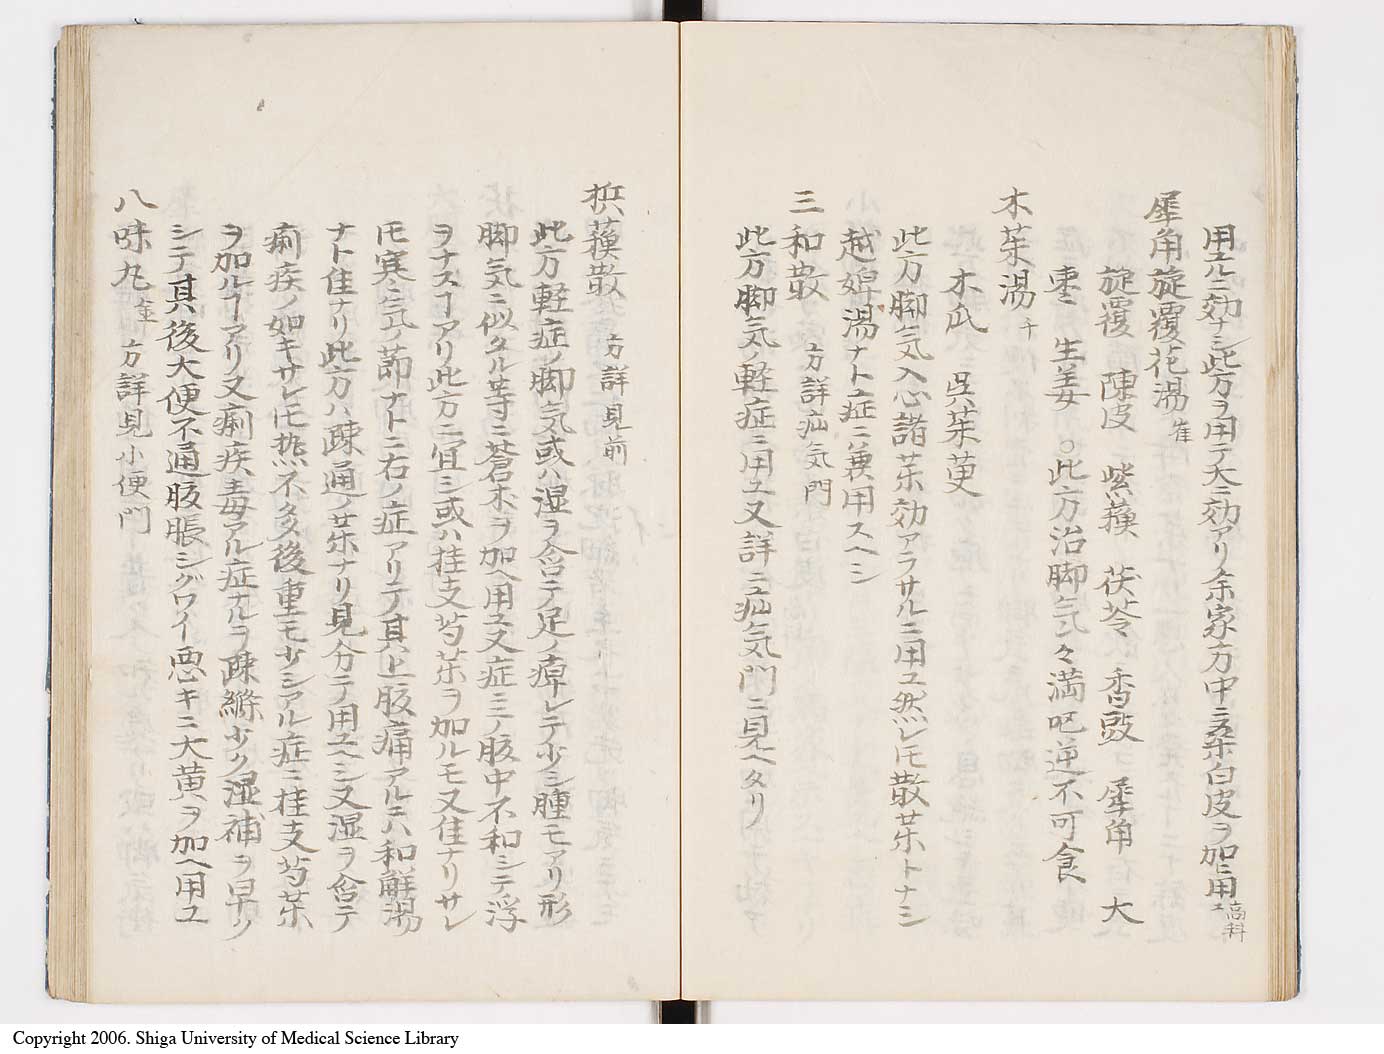 用ユルニ効ナシ此方ヲ用テ大ニ効アリ余家方中ニ桑白皮ヲ加ヒ用ユ高料
犀角旋覆花湯崔
旋覆 陳皮 紫蘓 茯苓 香豉 犀角 大
棗 生姜 ○此方治脚気々満呕逆不可食
木茱湯千
木瓜 呉茱萸
此方脚気入心諸茱効アラサルニ用ユ然レ𪜈散茱トナシ
越婢湯ナト症ニ兼用スヘシ
三和散 方詳疝気門
此方脚気ノ軽症ニ用ユ又詳ニ疝気門ニ見ヘタリ
梹蘓散 方詳見前
此方軽症ノ脚気或ハ湿ヲ含テ足ノ痺レテ少シ腫モアリ形
脚気ニ似タル等ニ蒼朮ヲ加ヘ用ユ又症ニノ腹中不和シテ浮
ヲナスヿアリ此方ニ宜シ或ハ桂支芍茱ヲ加ルモ又佳ナリサレ
𪜈寒気ノ節ナトニ右ノ症アリテ其上腹痛アルニハ和解湯
ナト佳ナリ此方ハ疎通ノ茱ナリ見分テ用ユヘシ又湿ヲ含テ
痢疾ノ如キサレ𪜈熱不多後重モ少シアル症ニ桂支芍茱
ヲ加ルヿアリ又痢疾毒アル症ナルヲ疎滌少ク湿補ヲ早ク
シテ其後大便不通腹脹シグワイ悪キニ大黄ヲ加ヘ用ユ
八味丸金 方詳見小便門
Copyright 2006. Shiga University of Medical Science Library